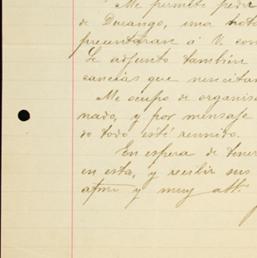 Me permito pedir
de Durango, una nota
presentaran á V. con
Le adjunto tambien
cancías que necesitan
Me ocupo de organis
nado, y por mensage
do todo esté reunido.
En espera de tener
en esta, y recibir sus
afmo y muy att.